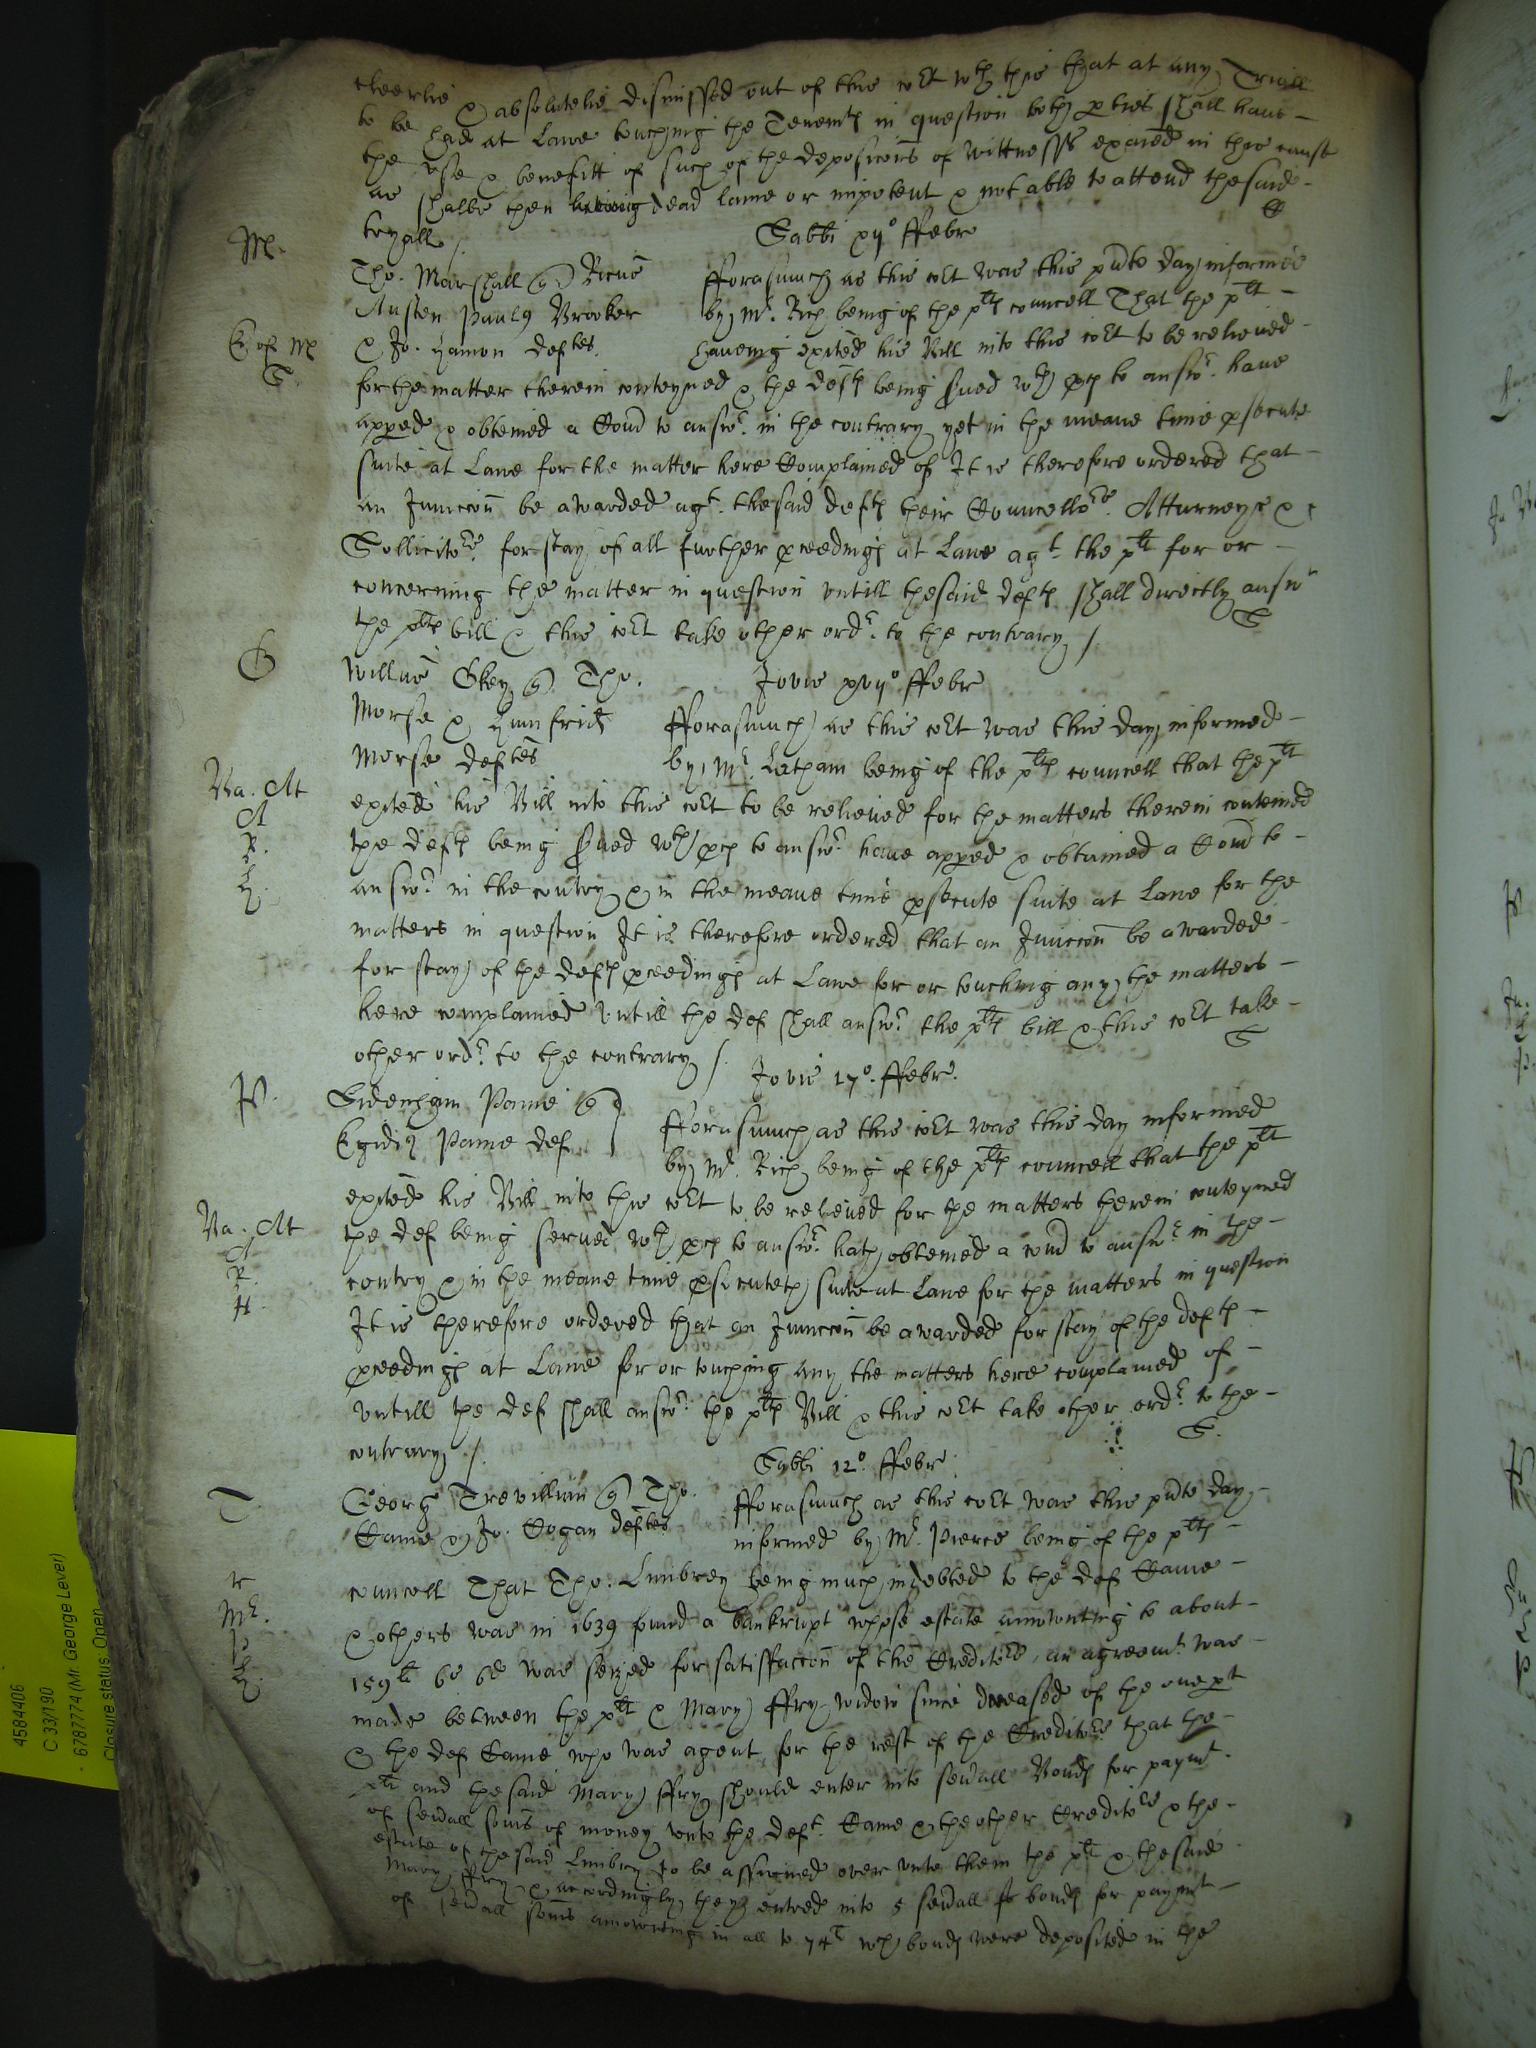 cleerlie & absolutelie dismissed out of this cot wth this that at any Triall
to be had at Lawe touching the Tenemts in question both pties shall haue
the use & benefitt of such of the deposicons of wittnesses exaied in this cause
as shalbe then dead lame or impotent & not able to attend the said
tryall /
Sabbi xijo ffebr
M.
Tho. Marshall Ricus
Austen Brooker
& Jo. Hamon deftes.
fforasmuch as this cot was this pnte day informed
by Mr. Rich being of the plts councell That the plt
haueing exited his Bill into this cot to be relieued
for the matter therein conteyned & the defts being srued wth pces to answr. haue
apped & obteined a Com to answr. in the contrary yet in the meane time psecute
suite at Lawe for the matter here Complained of It is therefore ordered that
an Iniuccon be awarded agt. the said defts their Councellors. Atturneys &
Sollicitors for stay of all further pceedings at Lawe agt. the plt for or
concerning the matter in question vntill the said defts shall directly answr
the plts bill & this cot take other ordr. to the contrary /
G
Willus Tho.
Morse & Humfrid
Morse deftes
Jovis xvijo ffebr
fforasmuch as this cot was this day informed
by Mr. Latham being of the plts councell that the plt
Va. At
A
R.
H.
exited his Bill into this cot to be relieued for the matters therein conteined
the defts being srued wth pces to answr. haue apped & obtained a Com to
answr. in the contry & in the meane time psecute suite at Lawe for the
matters in question It is therefore ordered that an Iniuccon be awarded
for stay of the defts pceedings at Lawe for or touching any the matters
here complained vntill the def shall answr. the plts bill & this cot take
other ordr. to the contrary /.
Jovis 17o. ffebr.
P.
Sidenham Paine
Egidij Paine def
fforasmuch as this cot was this day informed
by Mr. Rich being of the plts councell that the plt
exited his Bill into this cot to be relieued for the matters therein conteyned
Va. At
A
R.
H.
the def being serued wth pces to answr. hath obteined a com to answr. in the
contry & in the meane time psecuteth suite at Lawe for the matters in question
It is therefore ordered that an Iniuccon be awarded for stay of the defts
pceedings at Lawe for or touching any the matters here complained of
vntill the def shall answr. the plts Bill & this cot take other ordr. to the
contrary ./.
Sabbi 12o. ffebr.
T
Georg Trevillian Tho.
Came & Jo. Cogan deftes
fforasmuch as this cot was this pnte day
informed by Mr. Pierce being of the plts
councell That Tho. Limbrey being much indebted to the def Came
& others was in 1639 found a bankrupt whose estate amounting to about
159li 6s 6d was seized for satisfaccon of the Creditors, an agreemt was
made between the plt & Mary ffry widow since deceased of the one pt
& the def Came who was agent for the rest of the Creditors that the
plt and the said Mary ffry should enter into seuall Bonds for paymt.
of seuall soms of money vnto the deft. Came & the other Creditors & the
estate of the said Limbry to be assigned over vnto them the plt & the said
Mary ffry & accordingly they entred into 5 seuall bonds for paymt
of seuall soms amounting in all to 74l wch bonds were deposited in the
4584406
C 33/190
6787774 (Mr. George Lever)
Closure status: Open